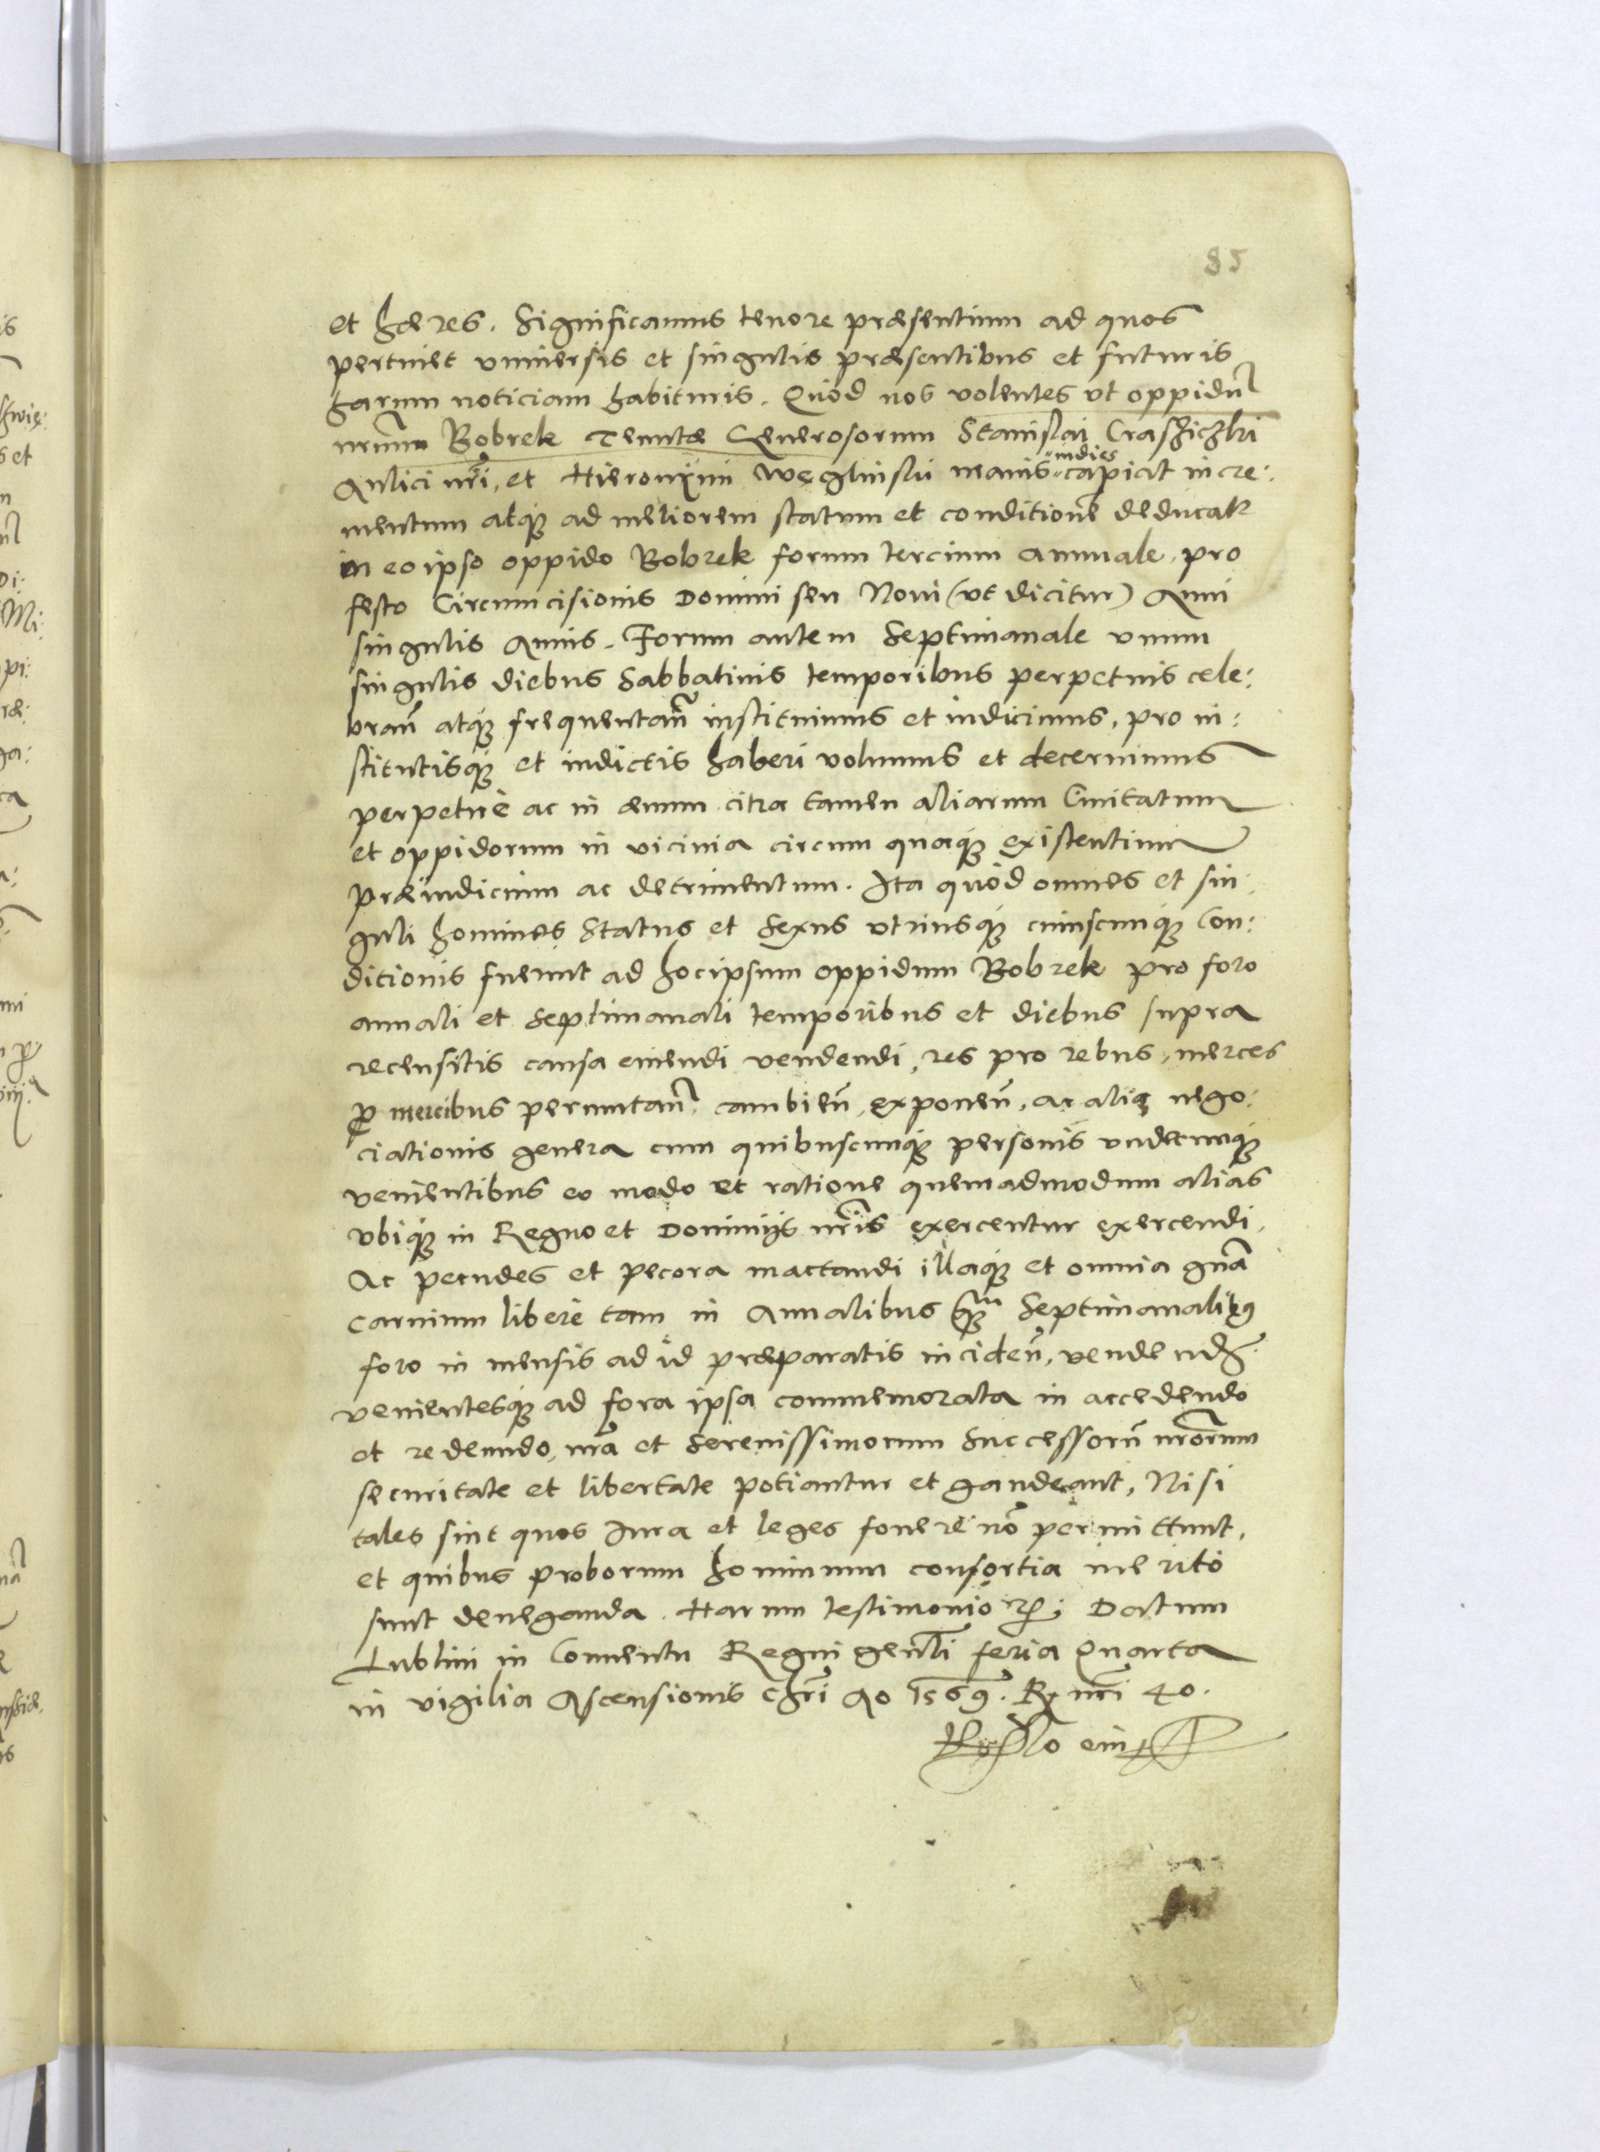 85
et hæres. Significamus tenore præsentium ad quos
pertinet vniuersis et singulis præsentibus et futuris
harum noticiam habituris. Quòd nos volentes vt oppidū
nrūm Bobrek Tenutæ Generosorum Stanislai
Aulici nrī, et Hieronÿmi Weglinskii maius indies capiat incre:
mentum atq́ue ad meliorem statum et conditionē deducat
in eo ipso oppido Bobrek forum tercium annuale, pro
festo Circumcisionis Domini seu Noui (vt dicitur) Anni
singulis Annis. Forum autem Septimanale vnum
singulis diebus Sabbatinis temporibus perpetuis cele:
bran̄ atq́ue frequentan̄ instituimus et indicimus, pro in:
stitutisq́ue et indictis haberi volumus et decernimus
perpetuè ac in æuum citra tamen aliarum Ciuitatum
et oppidorum in vicinia circum quaq́ue existentium
præiudicium ac detrimentum. Ita quòd omnes et sin:
guli homines Status et Sexus vtriusq́ue cuiuscunq́ue Con:
ditionis fuerint ad hocipsum oppidum Bobrek pro foro
annali et Septimanali temporibus et diebus supra
recensitis causa emendi vendendi, res pro rebus, merces
pro mercibus permutan̄ cambien̄, exponen̄, ac alia nego:
ciationis genera cum quibuscunq́ue personis vndecunq́ue
venientibus eo modo et ratione quemadmodum alias
vbiq́ue in Regno et Dominijs nrīs exercentur exercendi.
Ac pecudes et pecora mactandi illaq́ue et omnia gnā
carnium liberè tam in Annalibus quam Septimanalibus
foro in mensis ad id præparatis inciden̄, vendend.
venientesq́ue ad fora ipsa commemorata in accedendo
et redeundo, nrā et Serenissimorum Successorū nrōrum
securitate et libertate potiantur et gaudeant, Nisi
tales sint quos Iura et leges fouere nō permittunt,
et quibus proborum hominum consortia meritò
sunt deneganda. Harum testimonio etc; Datum
Lublini in Conuentu Regni genli feria Quarta
in vigilia Ascensionis Chrī Ao 1569. R. nrī 40.